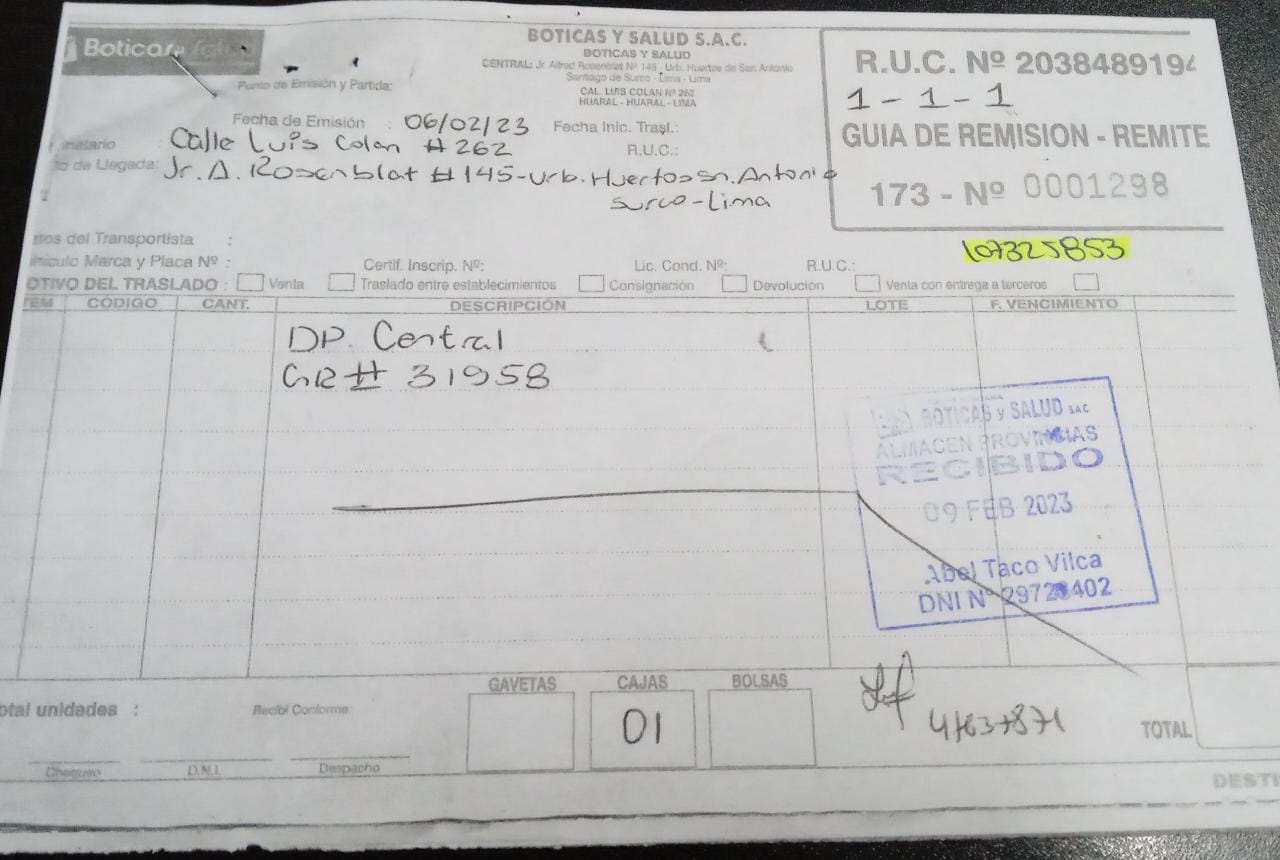 Boticas
BOTICAS Y SALUD S.A.C.
BOTICAS Y SALUD
CENTRAL: Jr. Alfred Rosenblat Nº 146 - Urb. Huertos de San Antonio
Santiago de Surco - Lima - Lima
CAL. LUIS COLAN Nº 262
HUARAL - HUARAL - LIMA
Punto de Emisión y Partida:
R.U.C. Nº 2038489194
1-1-1
GUIA DE REMISION - REMITE
173 - Nº 0001298
Fecha de Emisión : 06/02/23 Fecha Inic. Trasl.:
natario Calle Luis Colan # 262 R.U.C.:
to de Llegada: Jr. A. Rosenblat # 145-Urb. Huertos Sn. Antonio
Surco-Lima
tos del Transportista :
hículo Marca y Placa Nº : Certif. Inscrip. Nº: Lic. Cond. Nº: R.U.C.:
107325853
OTIVO DEL TRASLADO : Venta Traslado entre establecimientos Consignación Devolución Venta con entrega a terceros
TEM CÓDIGO CANT. DESCRIPCIÓN LOTE F. VENCIMIENTO
DP. Central
GR # 31958
BOTICAS y SALUD SAC
ALMACEN PROVINCIAS
RECIBIDO
09 FEB 2023
Abel Taco Vilca
DNI Nº
GAVETAS CAJAS BOLSAS
01
otal unidades : Recibí Conforme:
Chequeo D.N.I. Despacho
TOTAL
DESTI